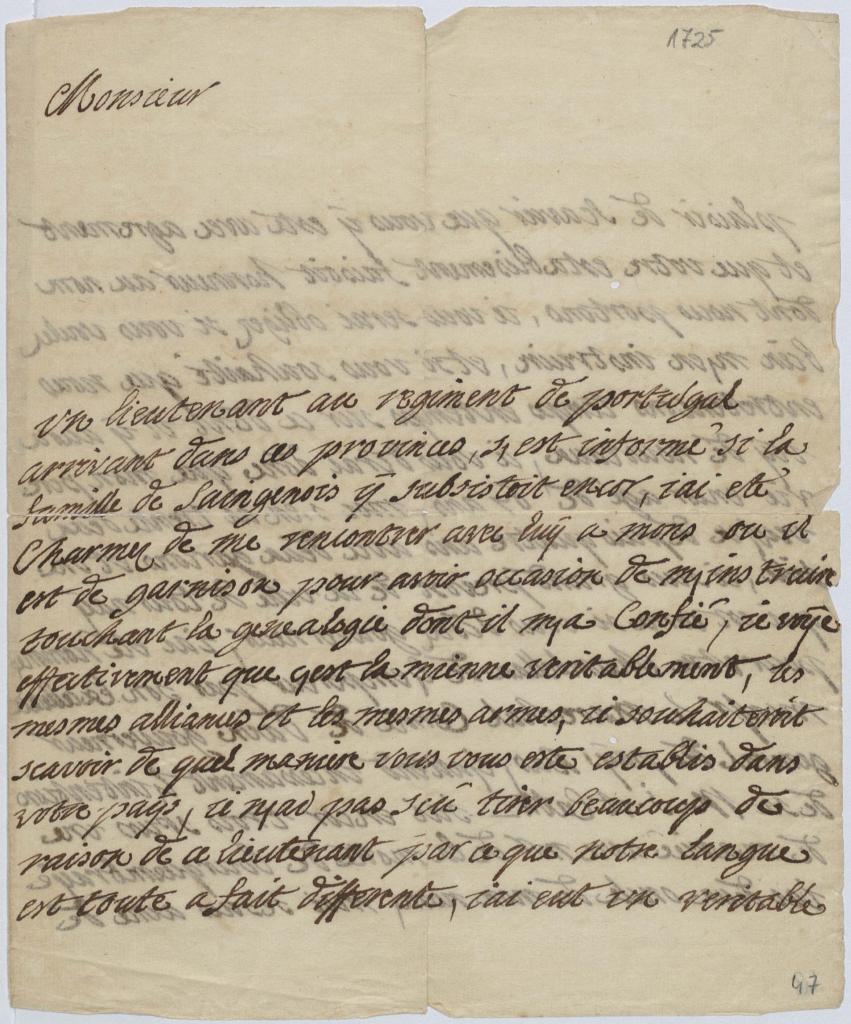 1725
Monsieur
un lieutenant au regiment de portugal
arrivant dans ces provinces, s, est informé si la
famille de Saingenois ÿ subsistoit encor, iai eté
Charmez de me rencontrer avec luÿ a mons ou il
est de garnison pour avoir occasion de m,instruire
touchant la genealogie dont il m,a Confié, ie voÿe
effectivement que c,est la mienne veritablement, les
mesmes alliances et les mesmes armes, ie souhaiteroit
scavoir de quel maniere vous vous este establis dans
votre païs, ie n,ai pas sceü tirer beaucoup de
raison de ce lieutenant par ce que notre langue
est toute a fait differente, iai eut un veritable
47